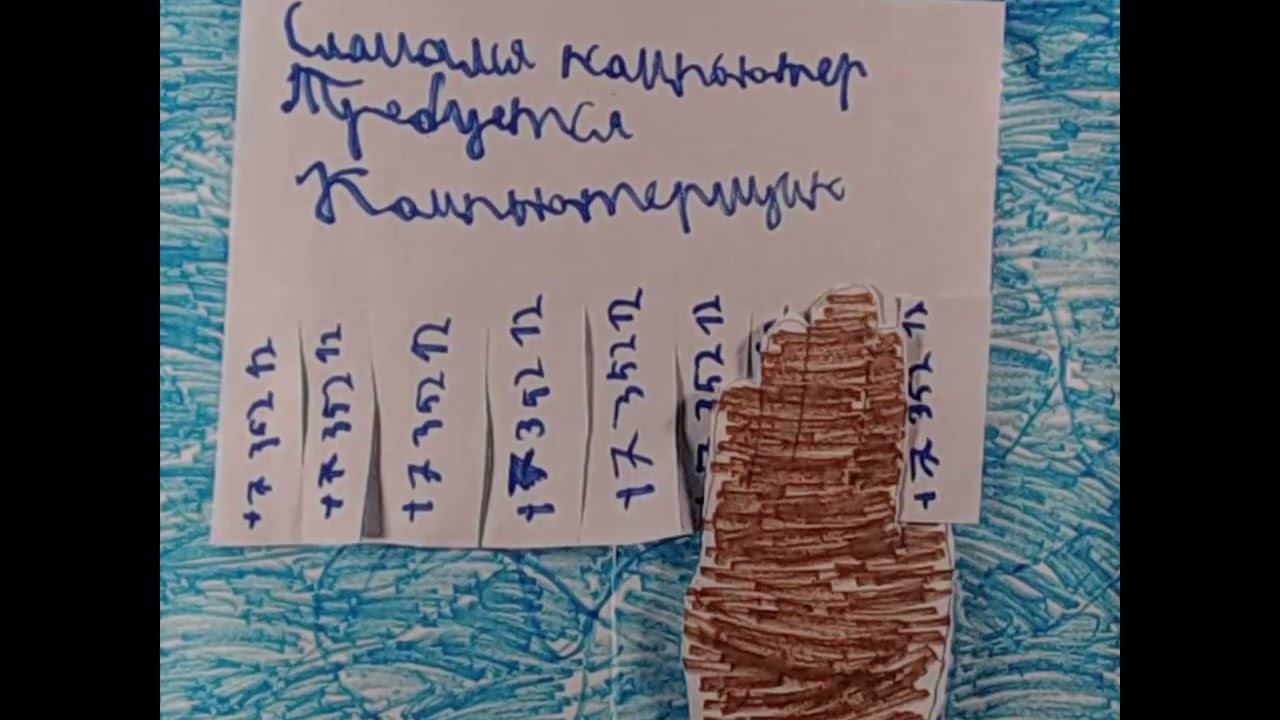 Сламался кампьютер
Требуется
Кампьютерщик
+7 352 12
+7 352 12
+7 352 12
+7 352 12
+7 352 12
7 352 12
+7 352 12